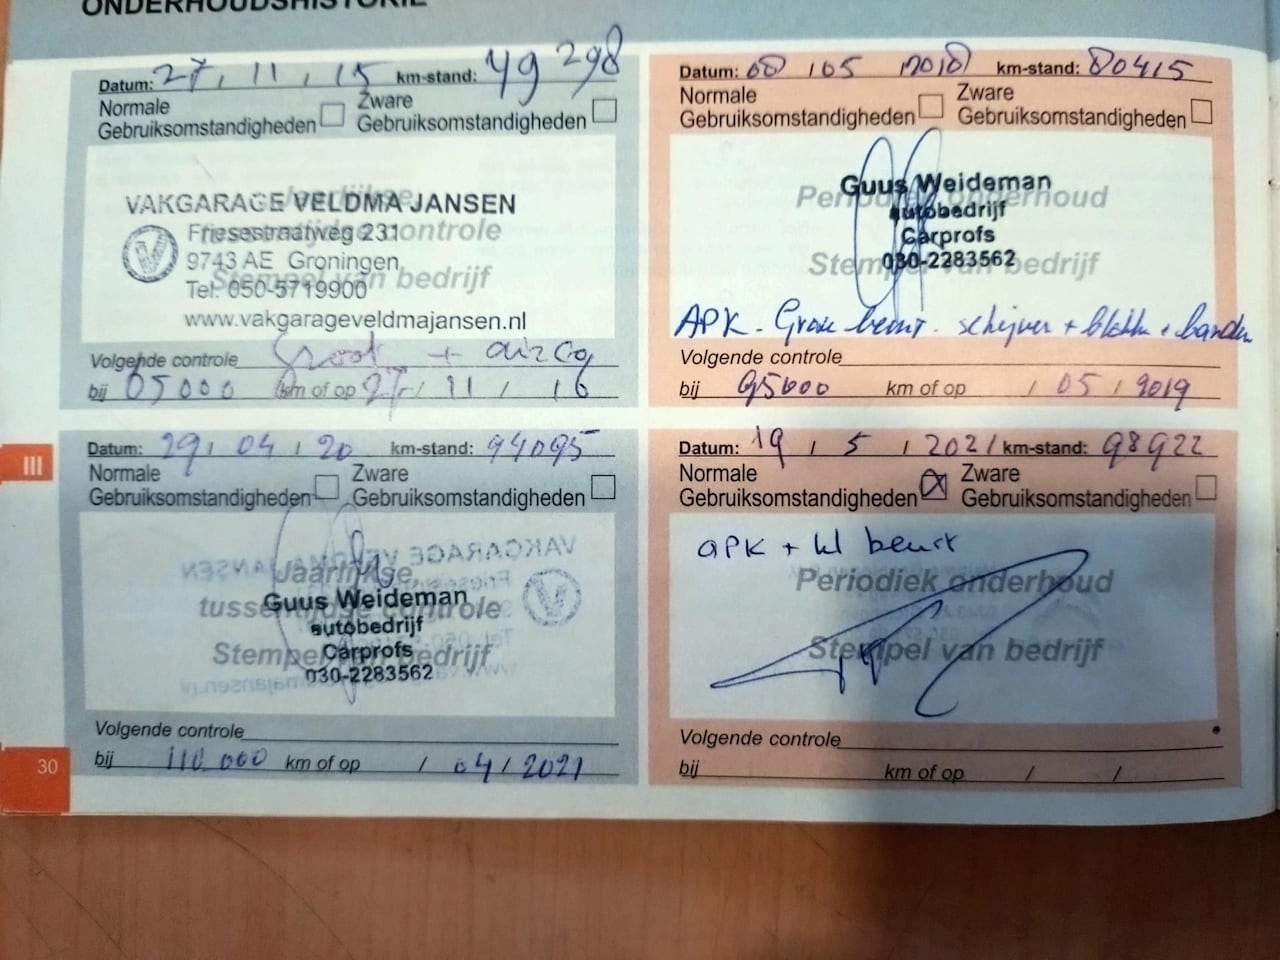 ONDERHOUDSHISTORIE
Datum: 27 / 11 / 15 km-stand: 49298
Normale Gebruiksomstandigheden
Zware Gebruiksomstandigheden
Jaarlijkse,
tussentijdse controle
Stempel van bedrijf
VAKGARAGE VELDMA JANSEN
Friesestraatweg 231
9743 AE Groningen
Tel. 050-5719900
www.vakgarageveldmajansen.nl
Volgende controle Groot + airco
bij 65000 km of op 27 / 11 / 16
Datum: 08 / 05 / 2018 km-stand: 80415
Normale Gebruiksomstandigheden
Zware Gebruiksomstandigheden
Periodiek onderhoud
Stempel van bedrijf
Guus Weideman
autobedrijf
Carprofs
030-2283562
APK - Grote beurt - schijven + blokken + banden
Volgende controle
bij 95000 km of op / 05 / 2019
Datum: 29 / 04 / 20 km-stand: 94095
Normale Gebruiksomstandigheden
Zware Gebruiksomstandigheden
Jaarlijkse,
tussentijdse controle
Stempel van bedrijf
Guus Weideman
autobedrijf
Carprofs
030-2283562
Volgende controle
bij 110 000 km of op / 04 / 2021
Datum: 19 / 5 / 2021 km-stand: 98922
Normale Gebruiksomstandigheden
Zware Gebruiksomstandigheden
APK + kl beurt
Periodiek onderhoud
Stempel van bedrijf
Volgende controle
bij km of op / /
III
30